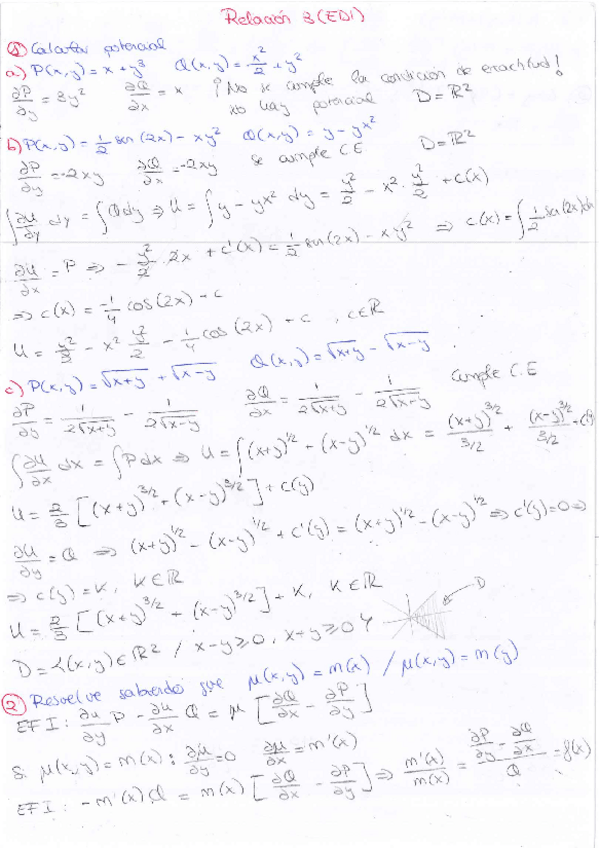 Relación 3 (EDI)
① Calcular potencial
a) P(x,y) = x + y³   Q(x,y) = x²/2 + y²
∂P/∂y = 3y²   ∂Q/∂x = x   ¡No se cumple la condición de exactitud!
no hay potencial   D = ℝ²
b) P(x,y) = 1/2 sen(2x) - xy²   Q(x,y) = y - yx²
∂P/∂y = -2xy   ∂Q/∂x = -2xy   se cumple C.E   D = ℝ²
∫ ∂u/∂y dy = ∫ Q dy ⇒ u = ∫ y - yx² dy = y²/2 - x² · y²/2 + c(x)
∂u/∂x = P ⇒ - y²/2 · 2x + c'(x) = 1/2 sen(2x) - xy² ⇒ c(x) = ∫ 1/2 sen(2x) dx
⇒ c(x) = -1/4 cos(2x) + c
u = y²/2 - x² y²/2 - 1/4 cos(2x) + c , c∈ℝ
c) P(x,y) = √(x+y) + √(x-y)   Q(x,y) = √(x+y) - √(x-y)
∂P/∂y = 1/(2√(x+y)) - 1/(2√(x-y))   ∂Q/∂x = 1/(2√(x+y)) - 1/(2√(x-y))   cumple C.E
∫ ∂u/∂x dx = ∫ P dx ⇒ u = ∫ (x+y)^(1/2) + (x-y)^(1/2) dx = (x+y)^(3/2)/(3/2) + (x-y)^(3/2)/(3/2) + c(y)
u = 2/3 [(x+y)^(3/2) + (x-y)^(3/2)] + c(y)
∂u/∂y = Q ⇒ (x+y)^(1/2) - (x-y)^(1/2) + c'(y) = (x+y)^(1/2) - (x-y)^(1/2) ⇒ c'(y) = 0 ⇒
⇒ c(y) = K, K∈ℝ
u = 2/3 [(x+y)^(3/2) + (x-y)^(3/2)] + K, K∈ℝ
D
D = {(x,y) ∈ ℝ² / x-y ≥ 0, x+y ≥ 0}
② Resuelve sabiendo que μ(x,y) = m(x) / μ(x,y) = m(y)
EFI: ∂u/∂y P - ∂u/∂x Q = μ [∂Q/∂x - ∂P/∂y]
Si μ(x,y) = m(x): ∂μ/∂y = 0   ∂μ/∂x = m'(x)
EFI: -m'(x) Q = m(x) [∂Q/∂x - ∂P/∂y] ⇒ m'(x)/m(x) = (∂P/∂y - ∂Q/∂x)/Q = f(x)